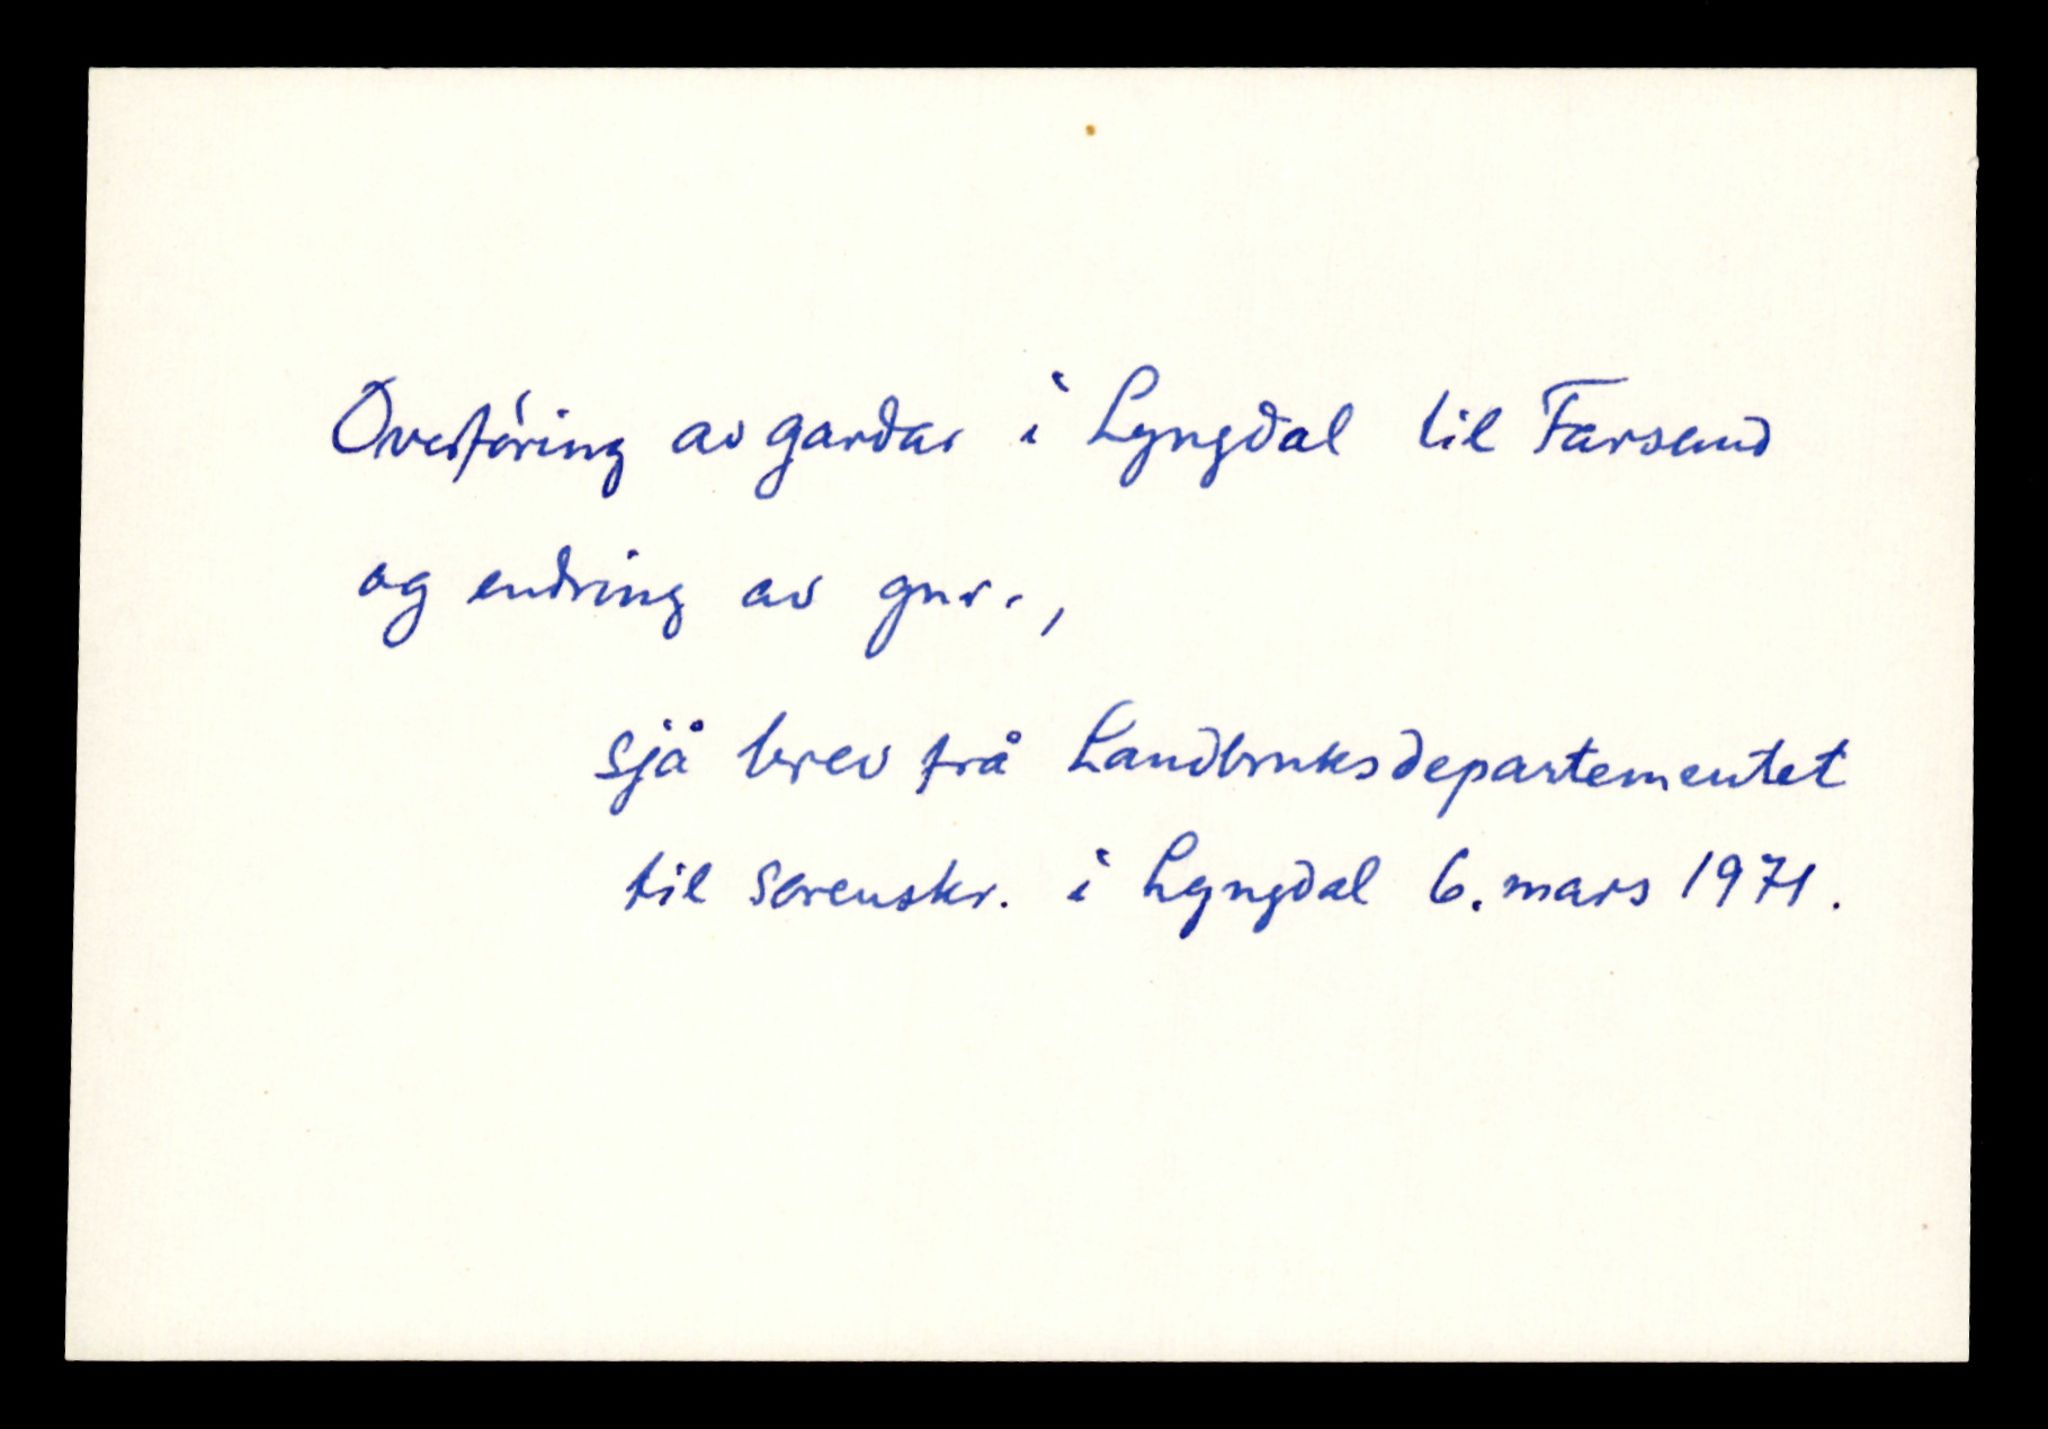 Overföring av gardar i Lyngdal til Farsund
og endring av gnr.,
sjå brev frå Landbruksdepartementet
til sorenskr. i Lyngdal 6. mars 1971.